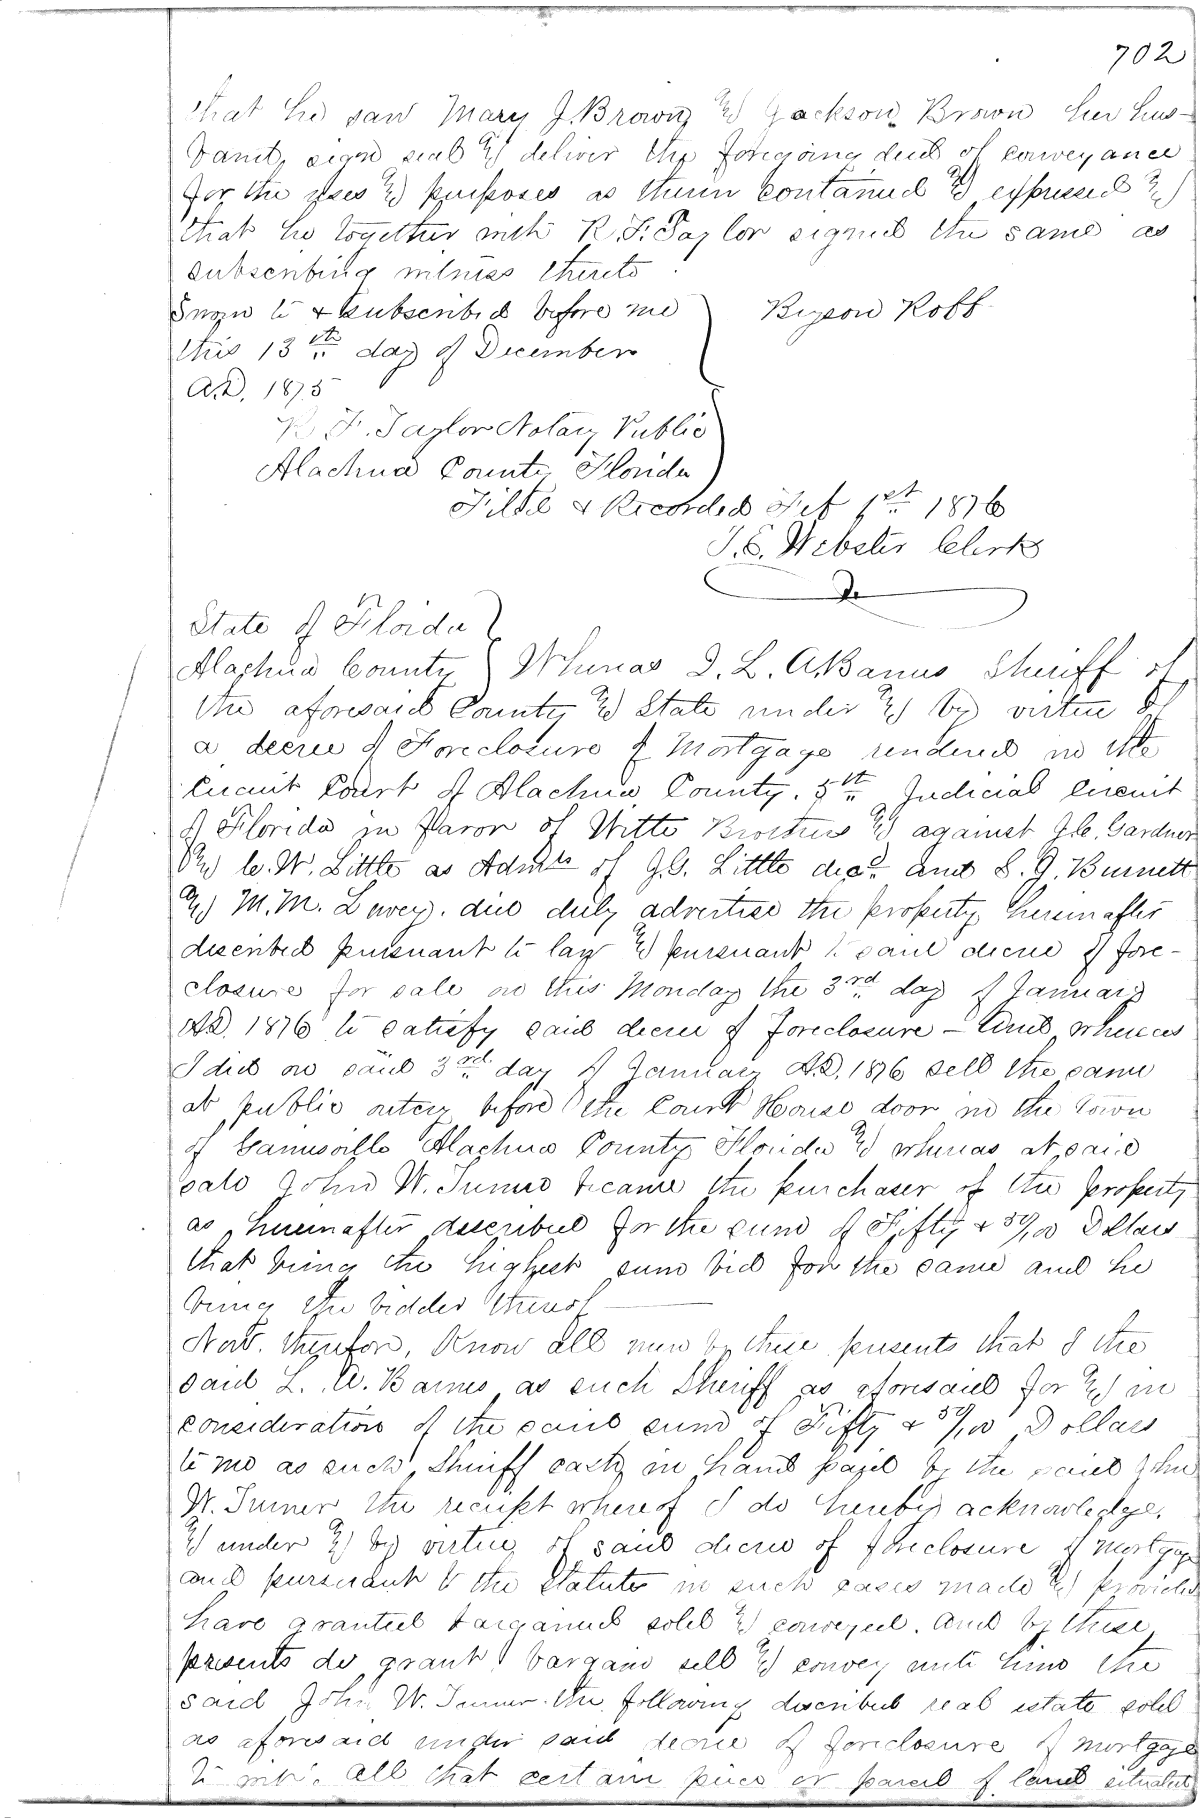 702
that he saw Mary J. Brown & Jackson Brown her hus-
band, sign seal & deliver the foregoing deed of conveyance
for the uses & purposes as therin contained & expressed &
that he together with R. F. Taylor signed the same as
subscribing witness thereto.
Sworn to & subscribed before me
this 13th day of December
A.D. 1875
Byson Robb
R. F. Taylor Notary Public
Alachua County Florida
Filed & Recorded Feb 1st 1876
J. E. Webster Clerk
State of Florida
Alachua County Whereas I. L. A. Barnes Sheriff of
the aforesaid County & State under & by virtue of
a decree of Foreclosure of Mortgage rendered in the
Circuit Court of Alachua County. 5th Judicial Circuit
of Florida in favor of Witte Brothers & against J.C. Gardner
& C. W. Little as Admrs of J.G. Little decd and S. J. Burnett
& M. M. did duly advertise the property hereinafter
described pursuant to law & pursuant to said decree of fore-
closure for sale on this Monday the 3rd day of January
A.D. 1876 to satisfy said decree of Foreclosure - And whereas
I did on said 3rd day of January A.D. 1876 sell the same
at public outcry before the Court House door in the Town
of Gainesville Alachua County Florida & whereas at said
sale John W. Turner became the purchaser of the property
as hereinafter described for the sum of Fifty & 50/100 Dollars
that being the highest sum bid for the same and he
being the bidder thereof
Now. therefore, Know all men by these presents that I the
said L. A. Barnes as such Sheriff as aforesaid for & in
consideration of the said sum of Fifty & 50/100 Dollars
to me as such Sheriff cash in hand paid by the said John
W. Turner the receipt whereof I do hereby acknowledge,
& under & by virtue of said decree of foreclosure of mortgage
and pursuant to the Statutes in such cases made & provided
have granted bargained sold & conveyed. And by these
presents do grant bargain sell & convey unto him the
said John W. Turner the following described real estate sold
as aforesaid under said decree of foreclosure of mortgage
to wit. All that certain piece or parcel of land situated